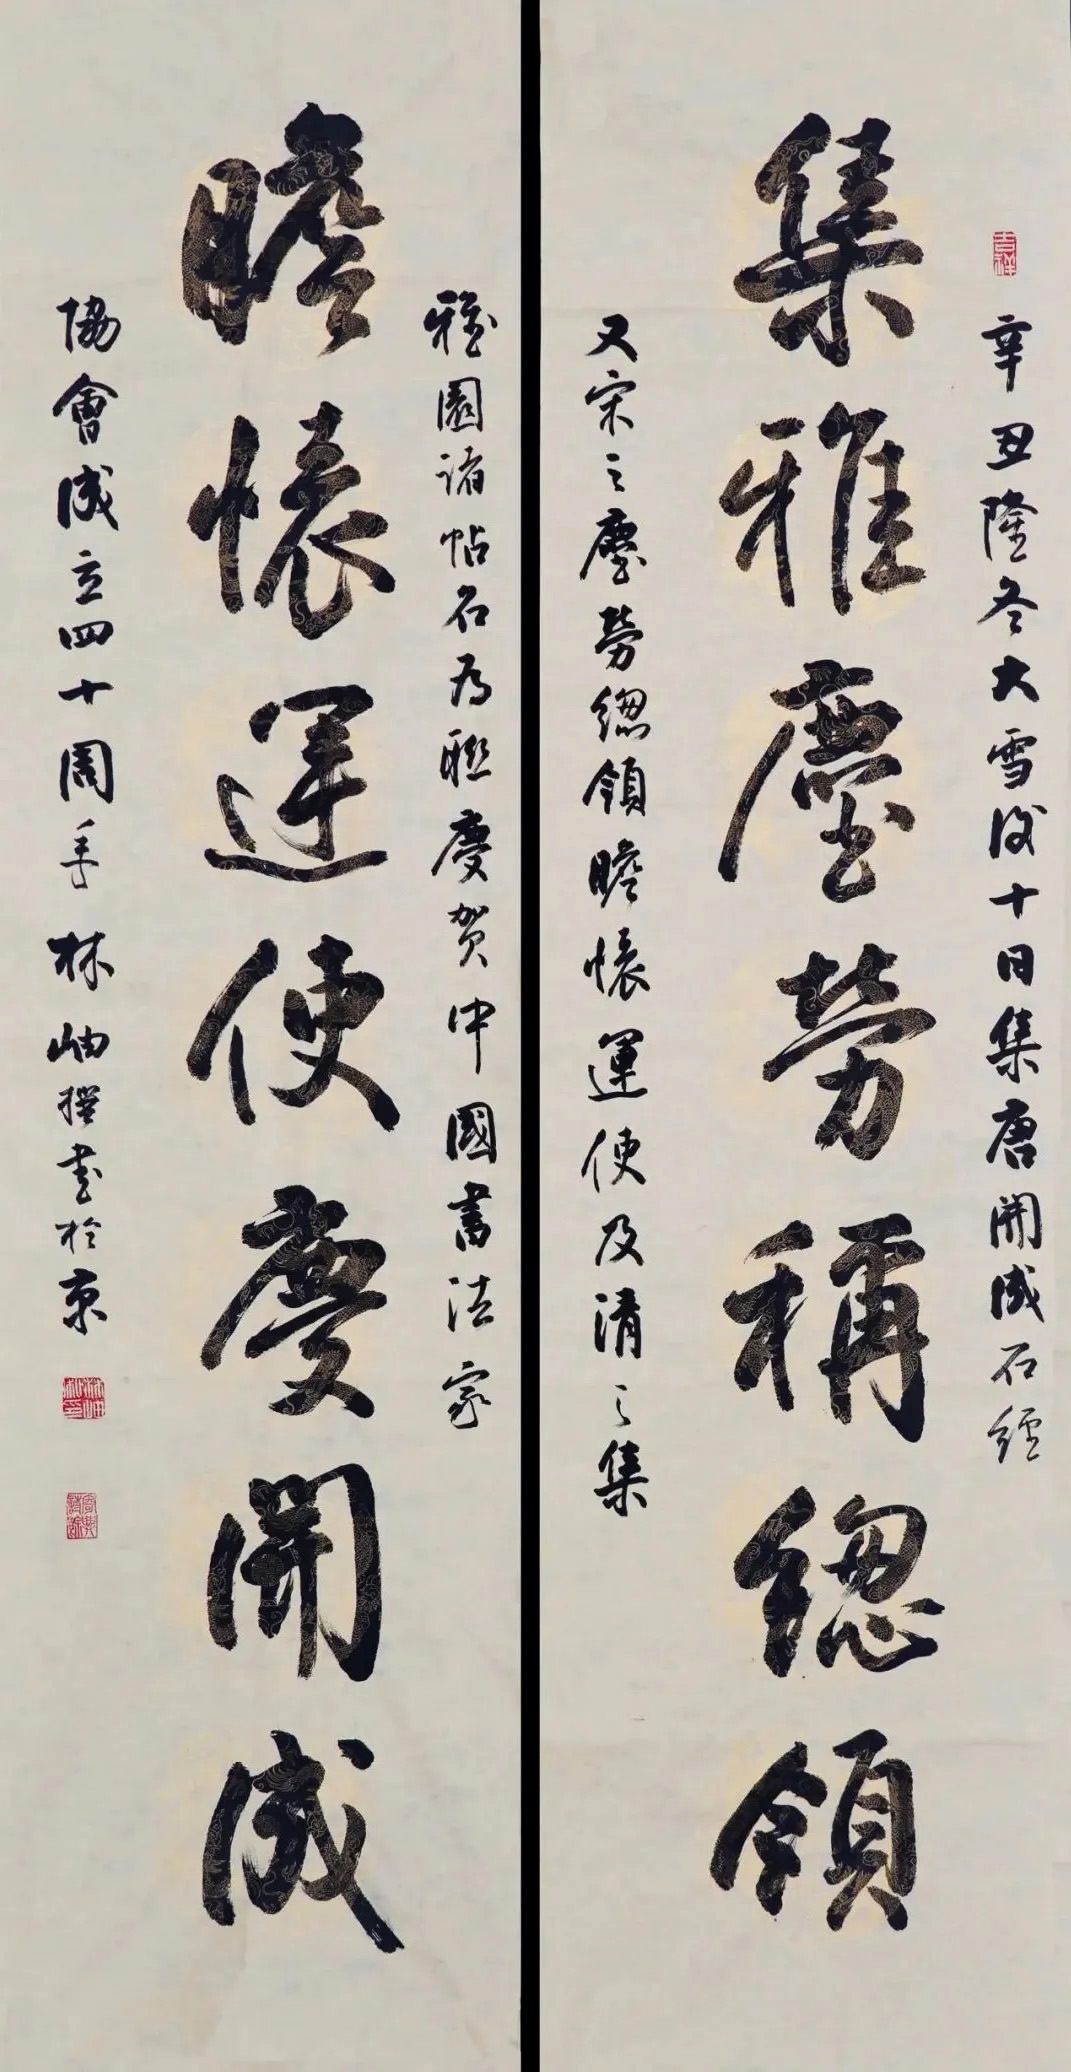 辛丑隆冬大雪後十日集唐開成石經
集雅麈勞稱總領
又宋之麈勞總領瞻懷運使及清之集
雅園諸帖名為聯慶賀中國書法家
瞻懷運使慶開成
協會成立四十周年林岫撰書於京
吉祥
林岫